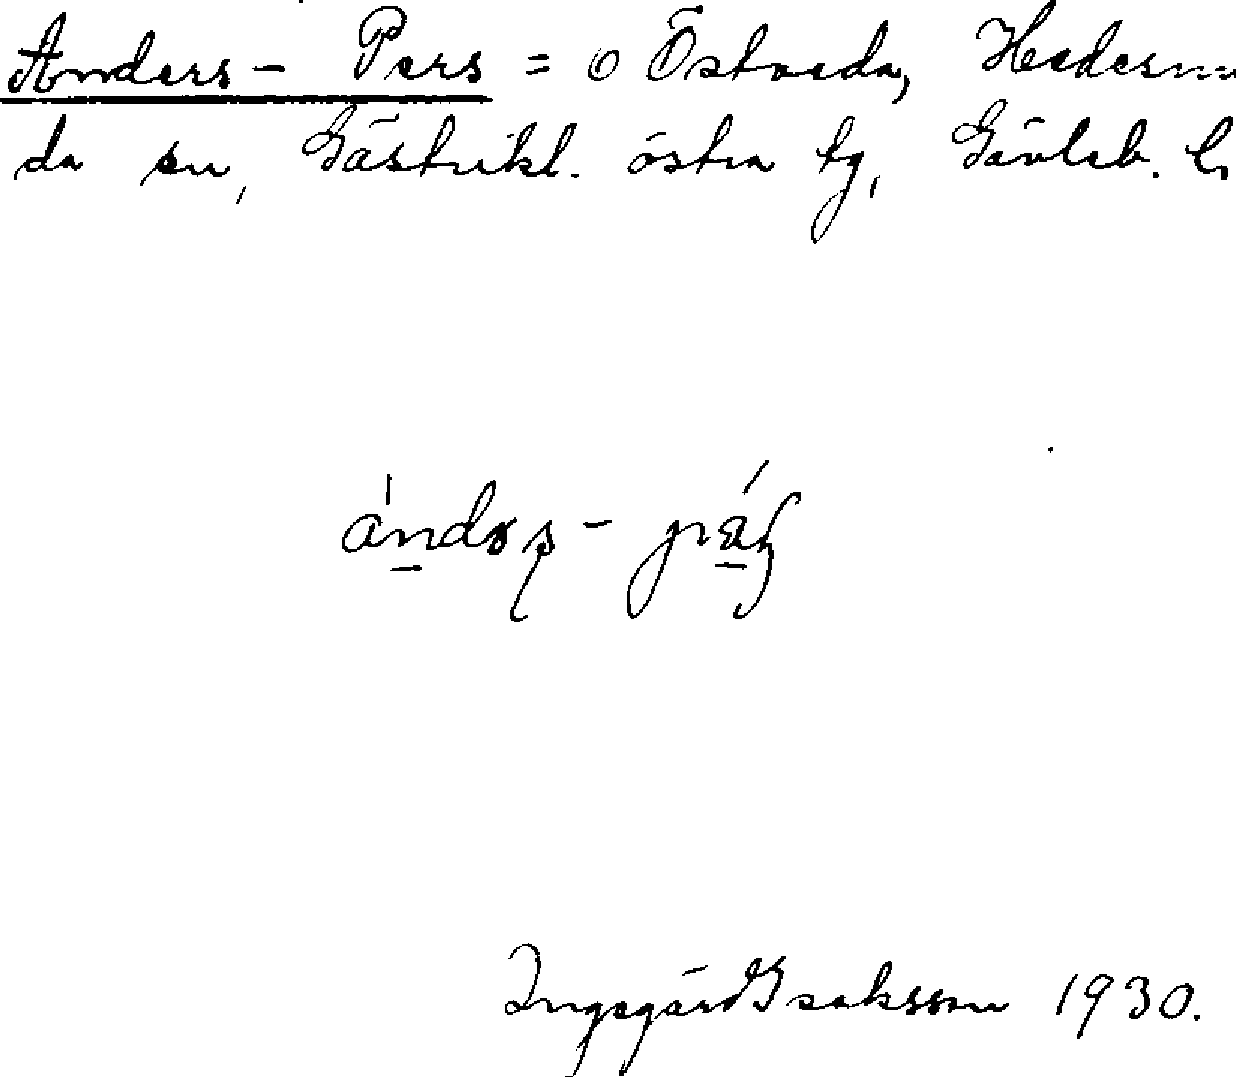 Anders - Pers = o Östveda, Hedesun
da sn, Gästrikl. östra tg, Gävleb. l.
Ingegärd Isaksson 1930.